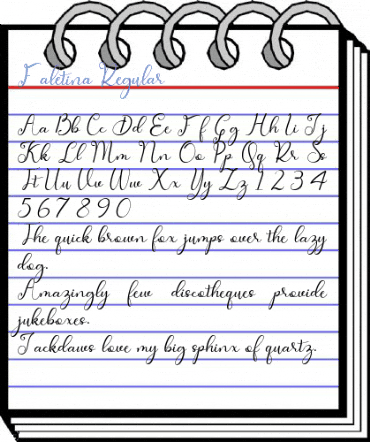 Faletina Regular
Aa Bb Cc Dd Ee Ff Gg Hh Ii Jj
Kk Ll Mm Nn Oo Pp Qq Rr Ss
Tt Uu Vv Ww Xx Yy Zz 1 2 3 4
5 6 7 8 9 0
The quick brown fox jumps over the lazy
dog.
Amazingly few discotheques provide
jukeboxes.
Jackdaws love my big sphinx of quartz.